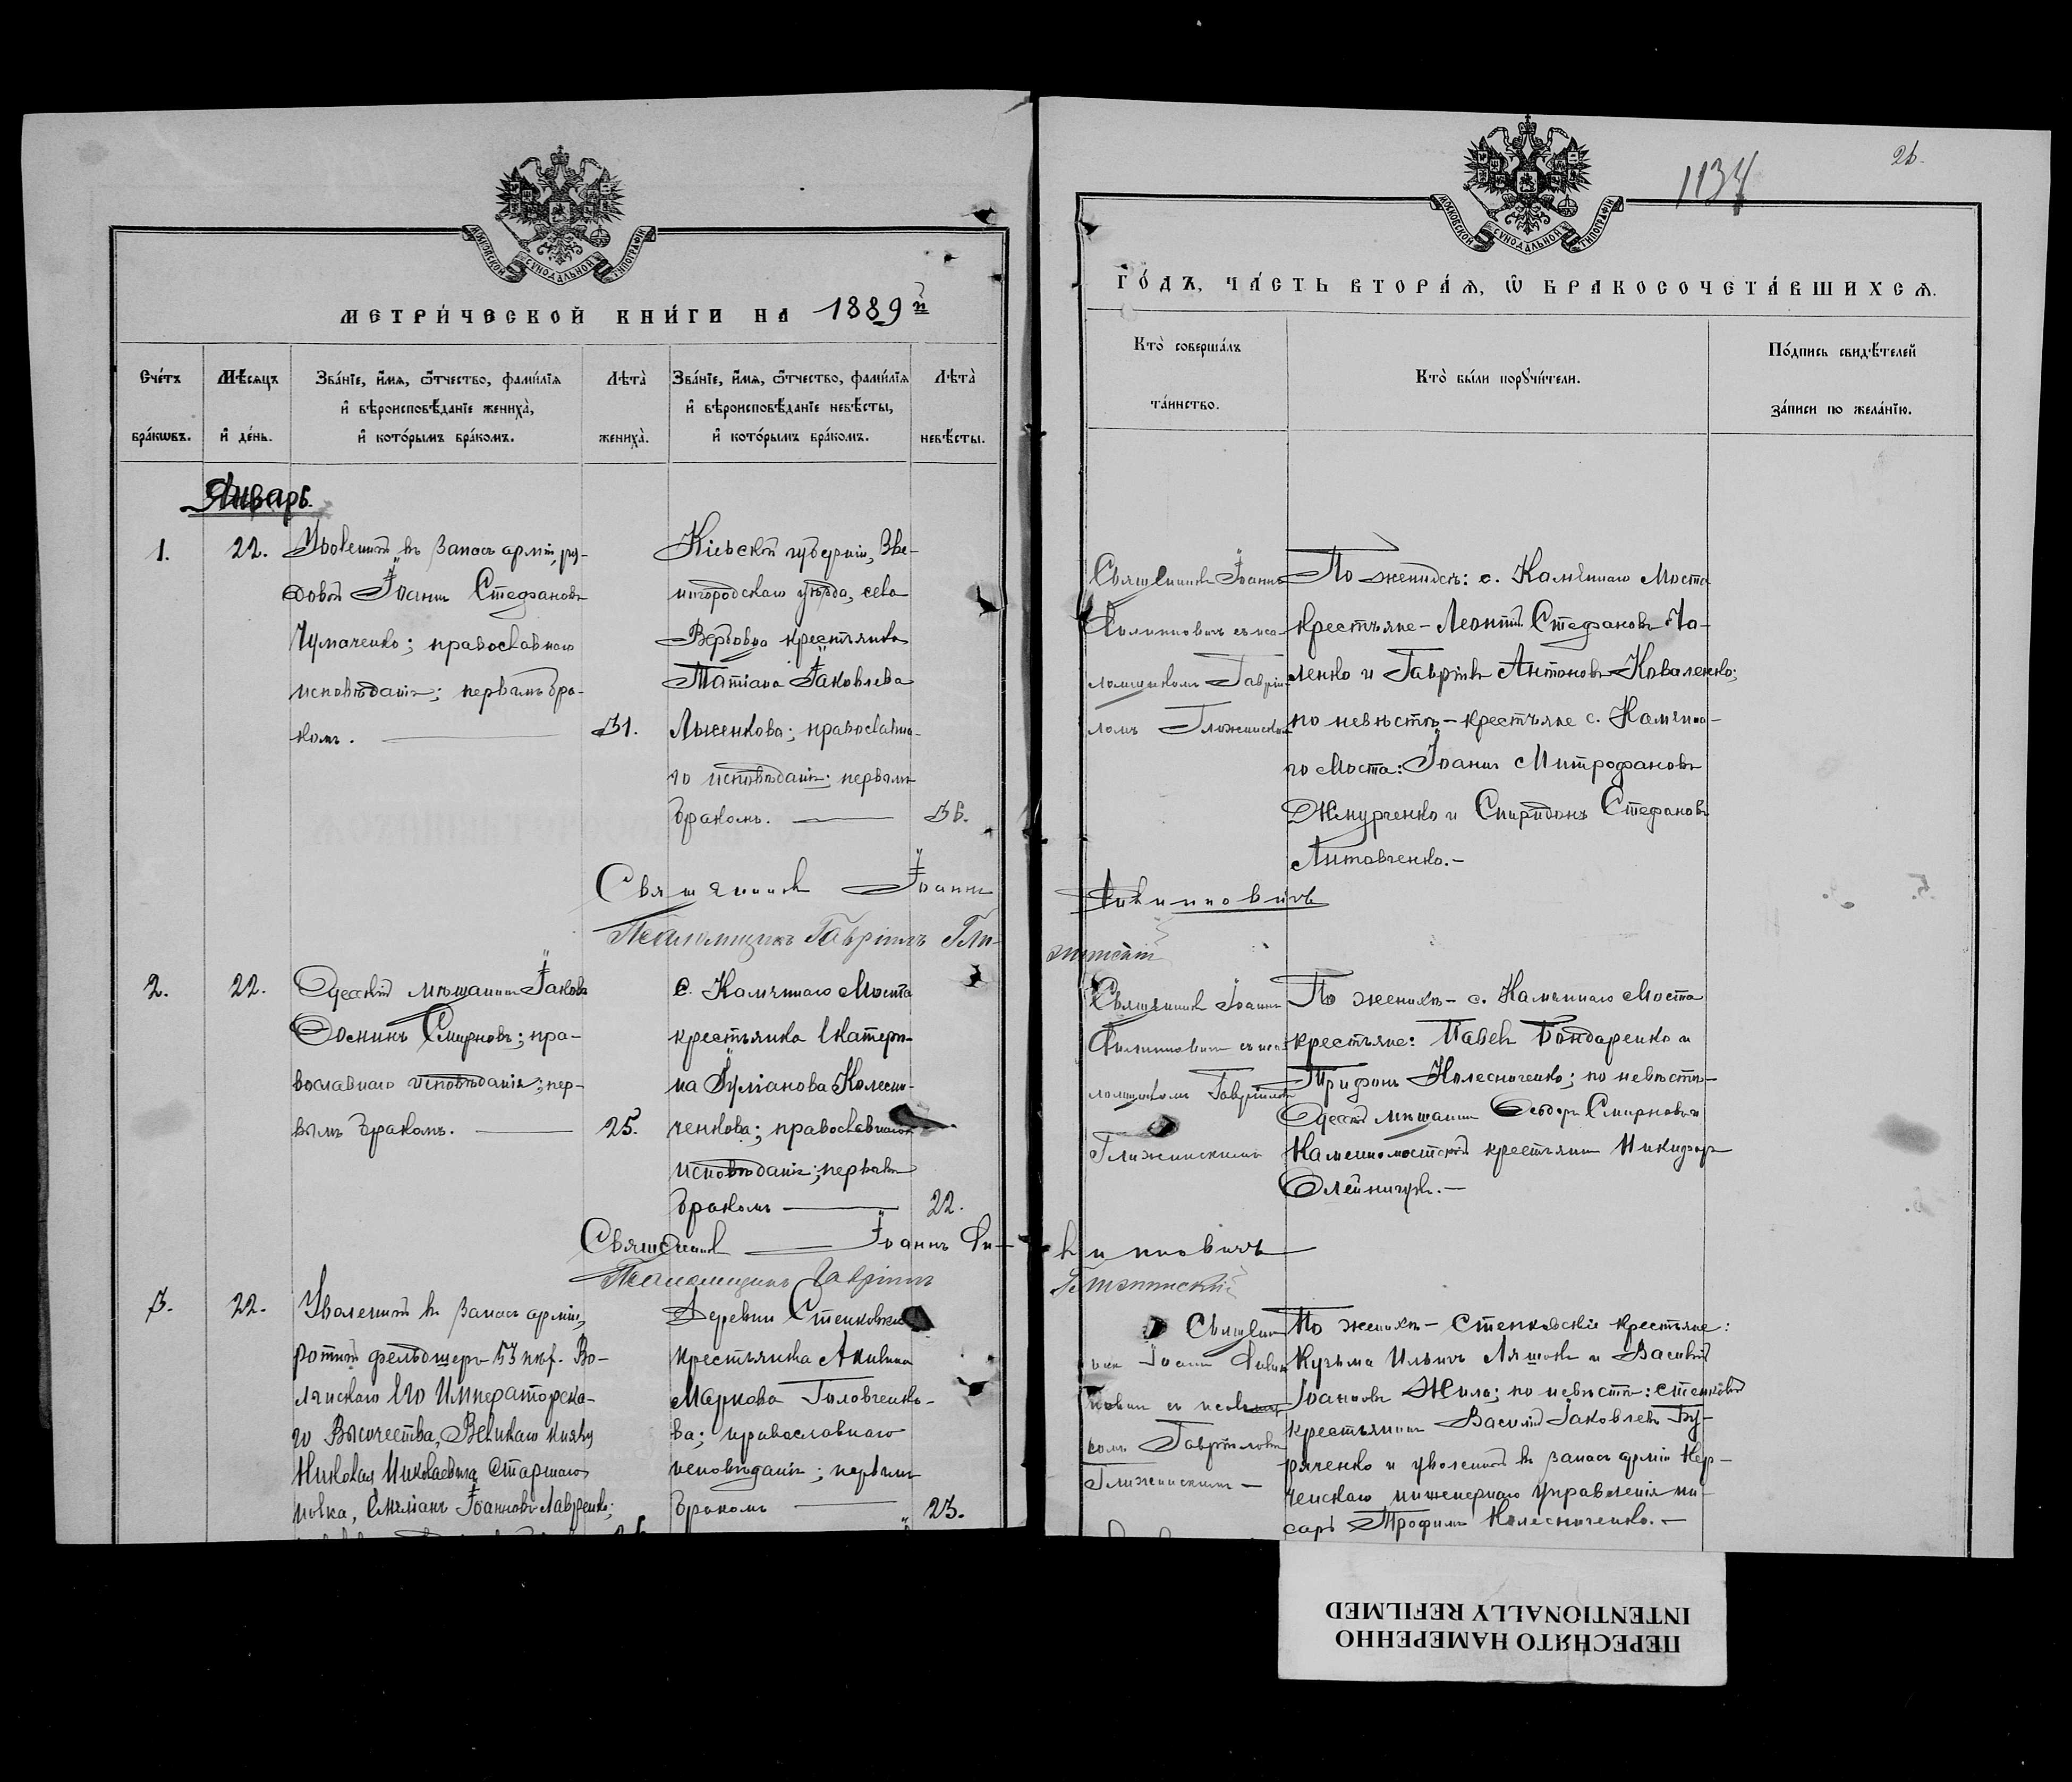 МОСКОВСКОЙ СУНОДАЛЬНОЙ ТИПОГРАФІИ
МЕТРИ́ЧЕСКОЙ КНИ́ГИ НА 1889й
Сче́тъ бра́кωвъ.
Мѣ́сяцъ и҆ де́нь.
Зва́нїе, и҆́мѧ, ѻ҆́тчество, фами́лїѧ
и҆ вѣроисповѣ́данїе жениха̀,
и҆ кото́рымъ бра́комъ.
Лѣ́та̀ жениха̀.
Зва́нїе, и҆́мѧ, ѻ҆́тчество, фами́лїѧ
и҆ вѣроисповѣ́данїе невѣ́сты,
и҆ кото́рымъ бра́комъ.
Лѣ́та̀ невѣ́сты.
Январь.
1.
22.
Уволенный въ запасъ арміи, ря-
довой Іоаннъ Стефановъ
Чумаченко; православнаго
исповѣданія; первымъ бра-
комъ.
31.
Кіевской губерніи, Зве-
нигородскаго уѣзда, села
Вербовца крестьянка
Татіана Іаковлева
Лысенкова; православна-
го исповѣданія; первымъ
бракомъ.
36.
Священникъ Іоаннъ
Псаломщикъ Гавріилъ Гли-
2.
22.
Одесскій мѣщанинъ Іаковъ
Смирновъ; пра-
вославнаго исповѣданія; пер-
вымъ бракомъ.
25.
с. Каменнаго Моста
крестьянка Екатери-
на Іуліанова Колесни-
ченкова; православнаго
исповѣданія; первымъ
бракомъ
22.
Священникъ Іоаннъ Фи-
Псаломщикъ Гавріилъ
3.
22.
Уволенный въ запасъ арміи,
ротный фельдшеръ 53 пѣх. Во-
лынскаго Его Императорска-
го Высочества, Великаго Князя
Николая Николаевича Старшаго
полка, Емеліанъ Іоанновъ Лавренко;
Деревни Стенковки
крестьянка Акилина
Маркова Головченко-
ва; православнаго
исповѣданія; первымъ
бракомъ
23.
МОСКОВСКОЙ СУНОДАЛЬНОЙ ТИПОГРАФІИ
1134
26.
ГО́ДЪ, ЧА́СТЬ ВТОРА́Ѧ, Ѽ БРАКОСОЧЕТА́ВШИХСѦ.
Кто̀ соверша́лъ
та́инство.
Кто̀ бы́ли порꙋчи́тели.
По́дпись свидѣ́телей
за́писи по жела́нїю.
Священникъ Іоаннъ
Филипповичъ съ пса-
ломщикомъ Гаврії-
ломъ Глижинскимъ
По женихѣ: с. Каменнаго Моста
крестьяне - Леонтій Стефановъ Га-
ленко и Гавріилъ Антоновъ Коваленко;
по невѣстѣ - крестьяне с. Каменна-
го Моста: Іоаннъ Митрофановъ
Джмурченко и Спиридонъ Стефановъ
Литовченко.-
Филипповичъ
жинскій
Священникъ Іоаннъ
Филипповичъ съ пса-
ломщикомъ Гавріиломъ
Глижинскимъ
По женихѣ - с. Каменнаго Моста
крестьяне: Павелъ Бондаренко и
Трифонъ Колесниченко; по невѣстѣ-
Одесскій мѣщанинъ Ѳеодоръ Смирновъ и
Каменномостскій крестьянинъ Никифоръ
Олейничукъ.-
липповичъ
Глижинскій
Священ-
никъ Іоаннъ Филип-
повичъ съ псаломщи-
комъ Гавріиломъ
Глижинскимъ -
По женихѣ - Стенковскіе крестьяне:
Кузьма Ильичъ Ляшокъ и Василій
Іоанновъ Жила; по невѣстѣ: Стенковскій
крестьянинъ Василій Іаковлевъ Бу-
ряченко и уволенный въ запасъ арміи Кер-
ченскаго инженернаго управленія пи-
сарь Трофимъ Колесниченко.-
ПЕРЕСНЯТО НАМЕРЕННО
INTENTIONALLY REFILMED